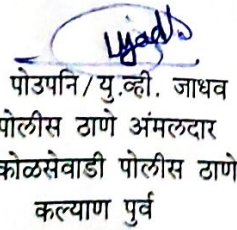 पोउपनि/यु.व्ही. जाधव
पोलीस ठाणे अंमलदार
कोळसेवाडी पोलीस ठाणे
कल्याण पुर्व